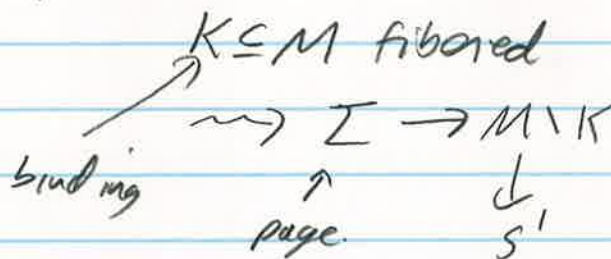 K ⊆ M fibered
⇝ Σ → M \ K
binding
↑ ↓
page. S¹